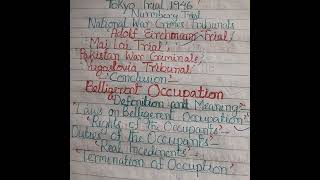 Tokyo Trial 1946
Nuremberg Trial
National War Crimes Tribunals
Adolf Eirchmann Trial
Mai Lai Trial
Pakistan War Criminals
Yugoslovia Tribunal
Conclusion
Belligerent Occupation
Definition and Meaning:-
Laws on Belligerent Occupation
Rights of the Occupants
Duties of the Occupants
Real Incedents
Termination of Occuption